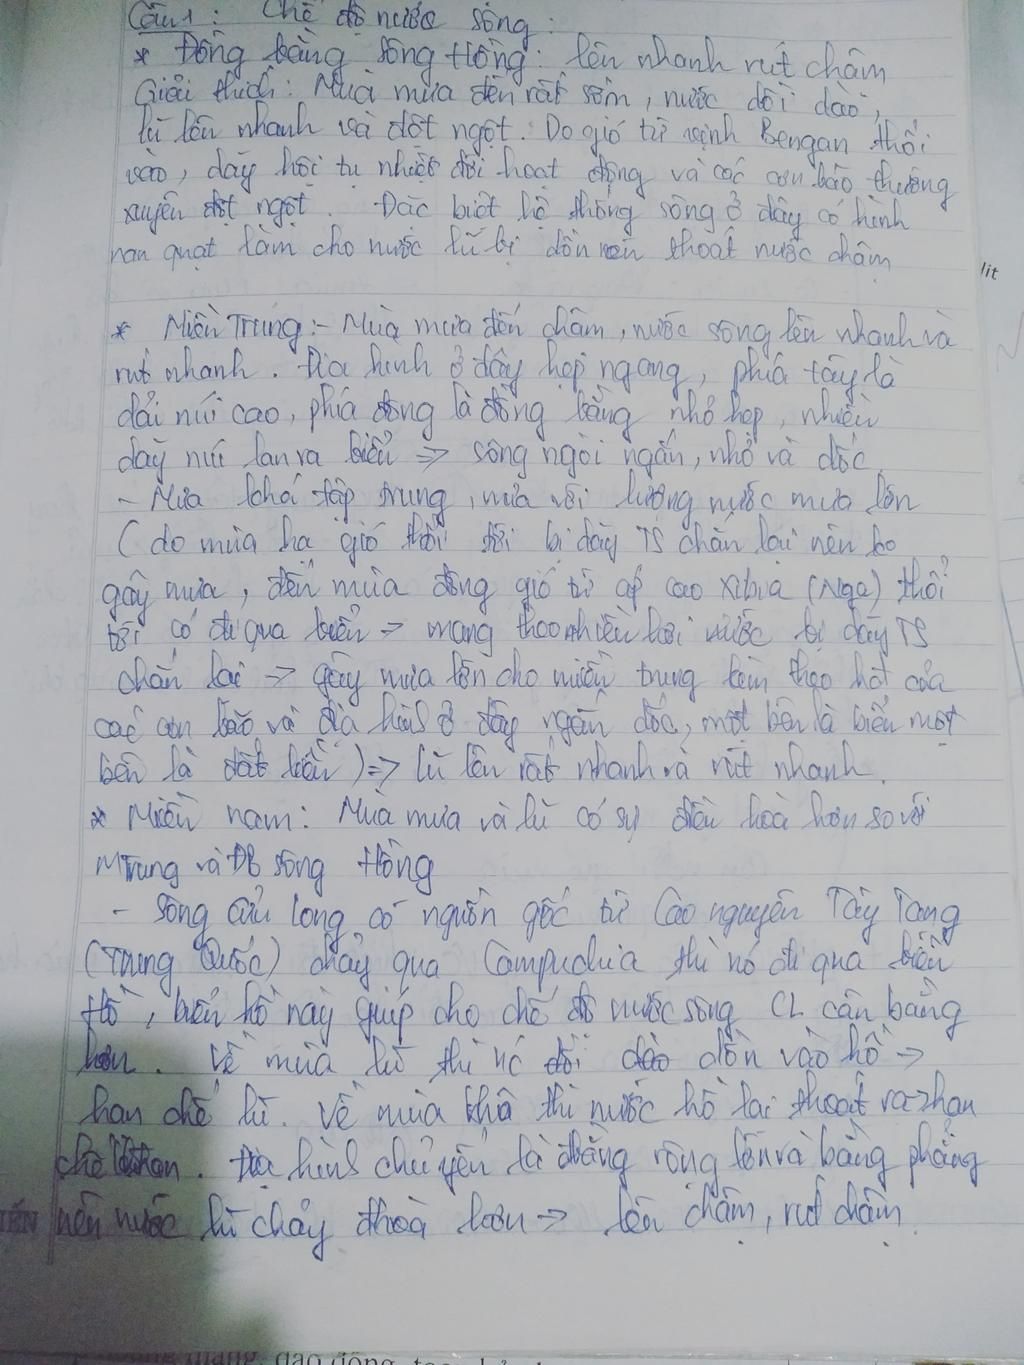 Câu 1: Chế độ nước sông:
* Đồng bằng sông Hồng: lên nhanh rút chậm
Giải thích: Mùa mưa đến rất sớm, nước dồi dào,
lũ lên nhanh và đột ngột. Do gió từ vịnh Bengan thổi
vào, dãy hội tụ nhiệt đới hoạt động và các cơn bão thường
xuyên đột ngột. Đặc biệt hệ thống sông ở đây có hình
nan quạt làm cho nước lũ bị dồn nén thoát nước chậm
lit
* Miền Trung: - Mùa mưa đến chậm, nước sông lên nhanh và
rút nhanh. Địa hình ở đây hẹp ngang, phía tây là
dải núi cao, phía đông là đồng bằng nhỏ hẹp, nhiều
dãy núi lan ra biển => sông ngòi ngắn, nhỏ và dốc.
- Mưa khá tập trung, mưa với lượng nước mưa lớn
(do mùa hạ gió thổi tới bị dãy TS chắn lại nên ko
gây mưa, đến mùa đông gió từ áp cao Xibia (Nga) thổi
tới có đi qua biển => mang theo nhiều hơi nước bị dãy TS
chắn lại => gây mưa lớn cho miền trung kèm theo hđ của
các cơn bão và địa hình ở đây ngắn dốc, một bên là biển một
bên là đất liền) => lũ lên rất nhanh và rút nhanh.
* Miền nam: Mùa mưa và lũ có sự điều hoà hơn so với
MTrung và ĐB sông Hồng
- Sông Cửu long có nguồn gốc từ Cao nguyên Tây Tạng
(Trung Quốc) chảy qua Campuchia thì nó đi qua biển
Hồ, biển hồ này giúp cho chế độ nước sông CL cân bằng
hơn. Về mùa lũ thì nc dồn vào hồ ->
hạn chế lũ. Về mùa khô thì nước hồ lại thoát ra -> hạn
chế hạn. Địa hình chủ yếu là đbằng rộng lớn và bằng phẳng
nên nước lũ chảy thoà hơn => lên chậm, rút chậm.